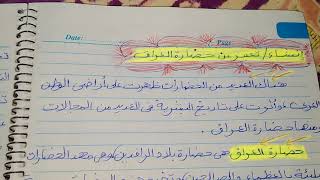 Date: Page
إنشاء / تعبير عن حضارة العراق
هناك العديد من الحضارات ظهرت على أراضي الوطن
العربي وأثرت على تاريخ البشرية في العديد من المجالات
ومنها حضارة العراق.
حضارة العراق هي حضارة بلاد الرافدين وهي مهد الحضارات